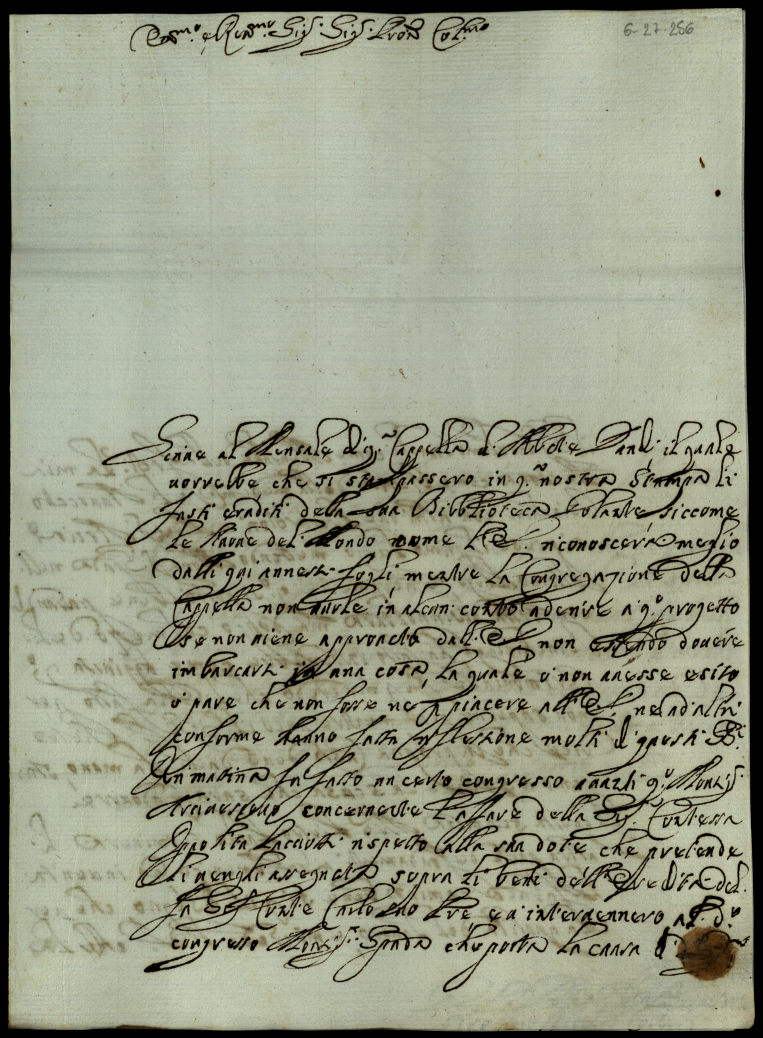 Em.mo e Rev.mo Sig.r Sig.r Pron Col.mo
6-27-256
Scrive al Mensale di q.a Cappella il quale
vorrebbe che si stampassero in q.a nostra Stampa li
Fasti eruditi della sua Bibblioteca Volante, siccome
le del Mondo come l'E. riconoscerà meglio
dalli qui annessi fogli, mentre la Congregazione della
Cappella non vuole in alcun conto aderire a q.o progetto
se non viene approvato dall'E. non dovere
imbarcarsi in una cosa, la quale ò non avesse esito
ò pare che non forse ne piacere all'E. ne ad altri
conforme hanno fatta riflessione molti di questi
mattina fu fatto un certo congresso avanti q.o Monsig.r
Arcivescovo concernente l'affare della Sig.ra Contessa
Ippolita rispetto alla sua dote che pretende
li venghi assegnata sopra li beni dell'Eredità del
fù Sig.r Conte Carlo suo Pre e vi intervennero al d.o
congresso Monsig.r Spada che porta la causa